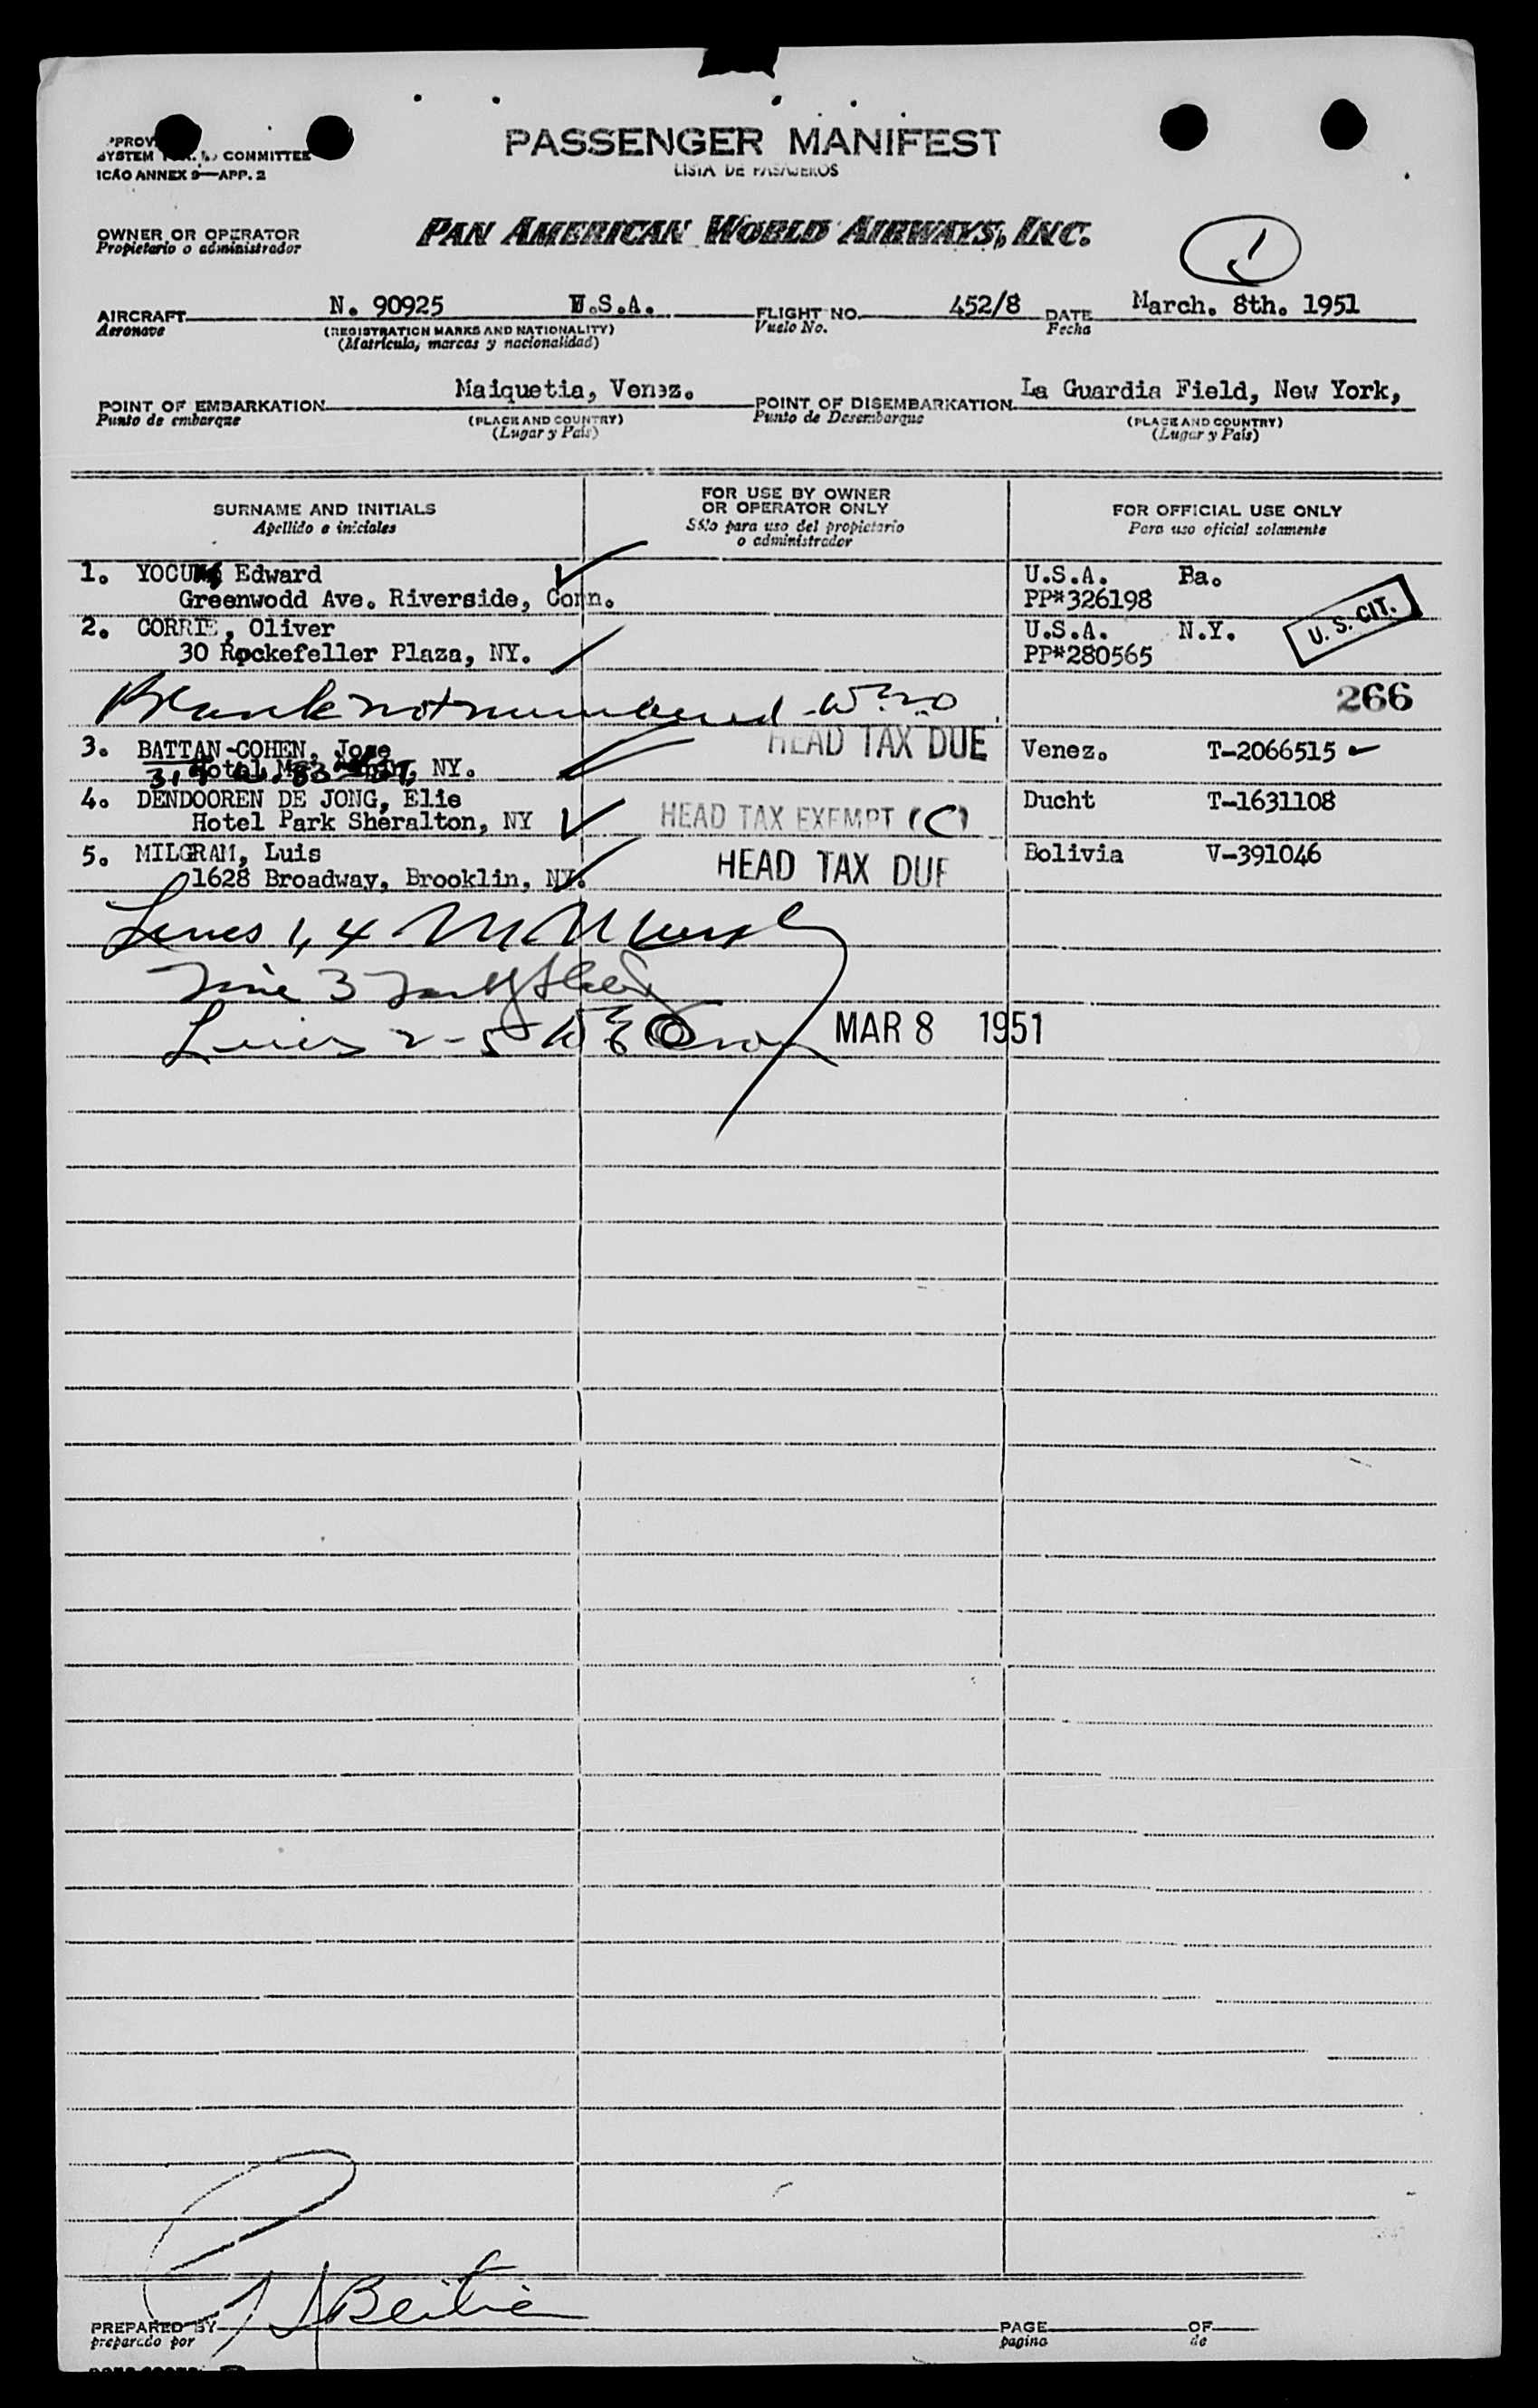 SYSTEM COMMITTEE
ICAO ANNEX 9—APP. 2
PASSENGER MANIFEST
LISTA DE PASAJEROS
OWNER OR OPERATOR
Propietario o administrador
PAN AMERICAN WORLD AIRWAYS, INC.
1
AIRCRAFT N. 90925 U.S.A. FLIGHT NO. 452/8 DATE March. 8th. 1951
Aeronave (REGISTRATION MARKS AND NATIONALITY) Vuelo No. Fecha
(Matrícula, marcas y nacionalidad)
POINT OF EMBARKATION Maiquetia, Venez. POINT OF DISEMBARKATION La Guardia Field, New York,
Punto de embarque (PLACE AND COUNTRY) Punto de Desembarque (PLACE AND COUNTRY)
(Lugar y País) (Lugar y País)
SURNAME AND INITIALS FOR USE BY OWNER OR OPERATOR ONLY FOR OFFICIAL USE ONLY
Apellido e iniciales Sólo para uso del propietario o administrador Para uso oficial solamente
1. YOCUM, Edward U.S.A. Pa.
Greenwodd Ave. Riverside, Conn. PP#326198
2. CORRIE, Oliver U.S.A. N.Y. U. S. CIT.
30 Rockefeller Plaza, NY. PP#280565
Blank not numbered 266
3. BATTAN-COHEN, Jose HEAD TAX DUE Venez. T-2066515
Hotel NY.
4. DENDOOREN DE JONG, Elie HEAD TAX EXEMPT (C) Ducht T-1631108
Hotel Park Sheralton, NY
5. MILGRAM, Luis HEAD TAX DUE Bolivia V-391046
1628 Broadway, Brooklin, NY.
Lines 1, 4
Line 3
Lines 2-5 MAR 8 1951
PREPARED BY PAGE OF
preparado por pagina de